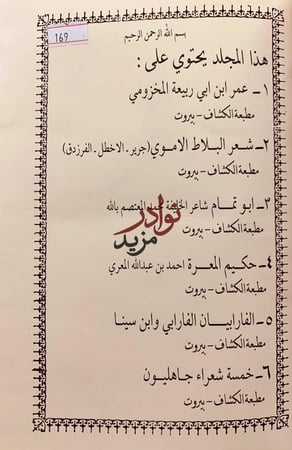 169
بسم الله الرحمن الرحيم
هذا المجلد يحتوي على :
١ - عمر ابن ابي ربيعة المخزومي
مطبعة الكشاف - بيروت
٢ - شعر البلاط الاموي (جرير - الاخطل - الفرزدق)
مطبعة الكشاف - بيروت
٣ - ابو تمام شاعر الخليفة محمد المعتصم بالله
مطبعة الكشاف - بيروت
نوادر
مزيد
٤ - حكيم المعرة احمد بن عبدالله المعري
مطبعة الكشاف - بيروت
٥ - الفارابيان الفارابي وابن سينا
مطبعة الكشاف - بيروت
٦ - خمسة شعراء جاهليون
مطبعة الكشاف - بيروت